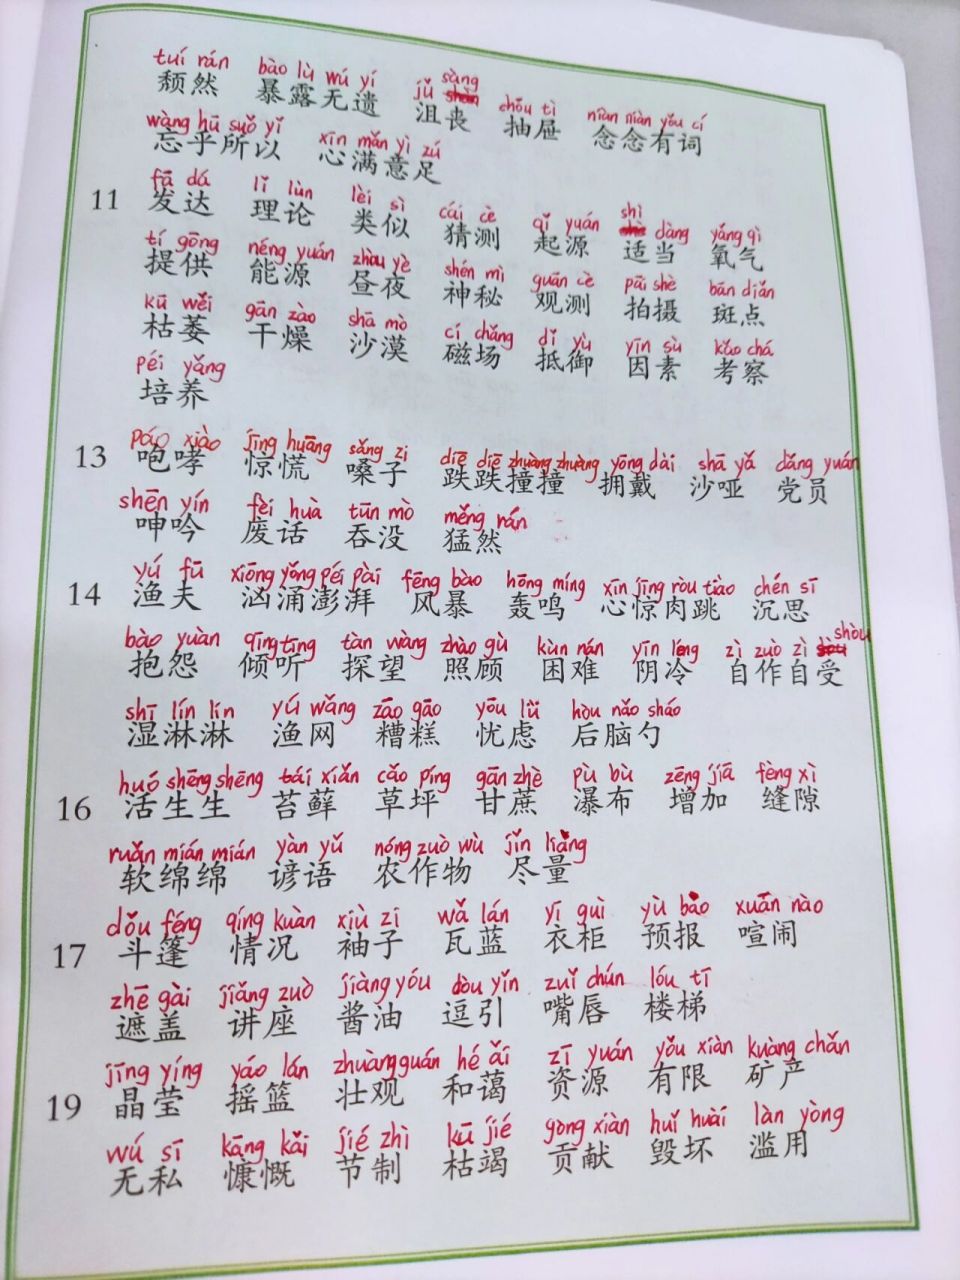 tuí rán bào lù wú yí jǔ sàng chōu tì niàn niàn yǒu cí
颓然 暴露无遗 沮丧 抽屉 念念有词
wàng hū suǒ yǐ xīn mǎn yì zú
忘乎所以 心满意足
fā dá lǐ lùn lèi sì cāi cè qǐ yuán shì dàng yǎng qì
11 发达 理论 类似 猜测 起源 适当 氧气
tí gōng néng yuán zhòu yè shén mì guān cè pāi shè bān diǎn
提供 能源 昼夜 神秘 观测 拍摄 斑点
kū wěi gān zào shā mò cí chǎng dǐ yù yīn sù kǎo chá
枯萎 干燥 沙漠 磁场 抵御 因素 考察
péi yǎng
培养
páo xiào jīng huāng sǎng zi diē diē zhuàng zhuàng yōng dài shā yǎ dǎng yuán
13 咆哮 惊慌 嗓子 跌跌撞撞 拥戴 沙哑 党员
shēn yín fèi huà tūn mò měng rán
呻吟 废话 吞没 猛然
yú fū xiōng yǒng péi pài fēng bào hōng míng xīn jīng ròu tiào chén sī
14 渔夫 汹涌澎湃 风暴 轰鸣 心惊肉跳 沉思
bào yuàn qīng tīng tàn wàng zhào gù kùn nán yīn lěng zì zuò zì shòu
抱怨 倾听 探望 照顾 困难 阴冷 自作自受
shī lín lín yú wǎng zāo gāo yōu lǜ hòu nǎo sháo
湿淋淋 渔网 糟糕 忧虑 后脑勺
huó shēng shēng tái xiǎn cǎo píng gān zhè pù bù zēng jiā fèng xì
16 活生生 苔藓 草坪 甘蔗 瀑布 增加 缝隙
ruǎn mián mián yàn yǔ nóng zuò wù jǐn liàng
软绵绵 谚语 农作物 尽量
dǒu féng qíng kuàn xiù zi wǎ lán yī guì yù bào xuān nào
17 斗篷 情况 袖子 瓦蓝 衣柜 预报 喧闹
zhē gài jiǎng zuò jiàng yóu dòu yǐn zuǐ chún lóu tī
遮盖 讲座 酱油 逗引 嘴唇 楼梯
jīng yíng yáo lán zhuàng guán hé ǎi zī yuán yǒu xiàn kuàng chǎn
19 晶莹 摇篮 壮观 和蔼 资源 有限 矿产
wú sī kāng kǎi jié zhì kū jié gòng xiàn huǐ huài làn yòng
无私 慷慨 节制 枯竭 贡献 毁坏 滥用